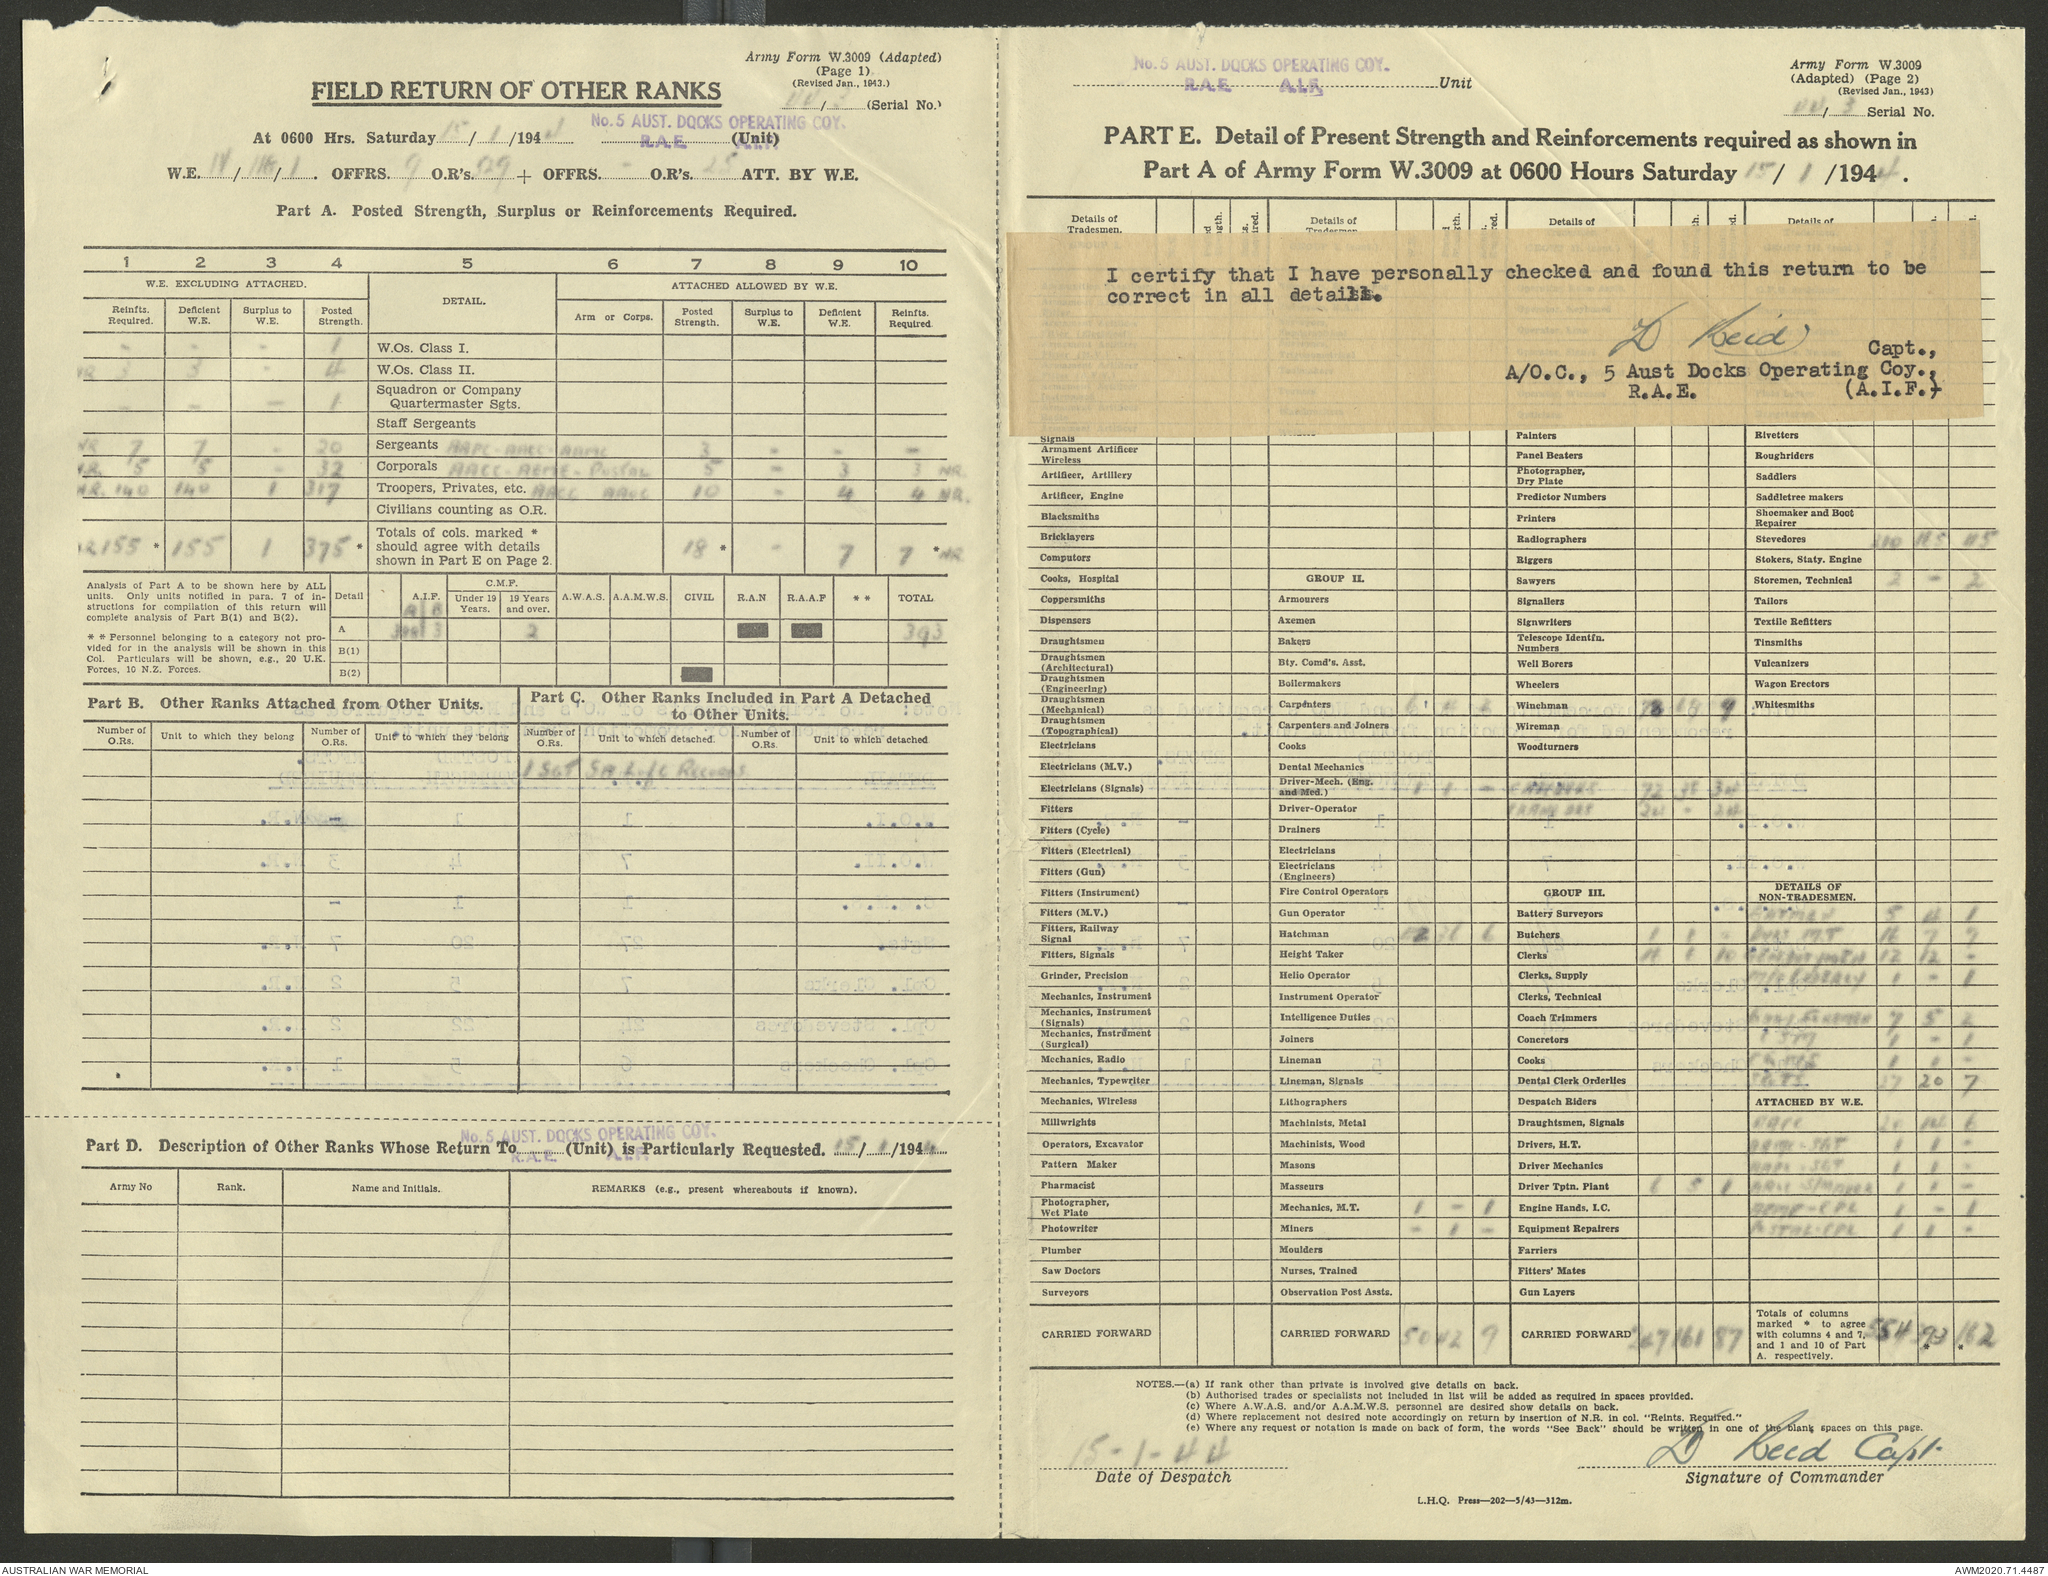 Army Form W.3009 (Adapted)
(Page 1)
(Revised Jan., 1943.)
FIELD RETURN OF OTHER RANKS
44/3 (Serial No.)
No. 5 AUST. DOCKS OPERATING COY.
R.A.E. A.I.F.
At 0600 Hrs. Saturday 15/1/1944 (Unit)
W.E. / /1. OFFRS. 9 O.R's. 529 + OFFRS. - O.R's. 25 ATT. BY W.E.
Part A. Posted Strength, Surplus or Reinforcements Required.
1 2 3 4 5 6 7 8 9 10
W.E. EXCLUDING ATTACHED. DETAIL. ATTACHED ALLOWED BY W.E.
Reinfts. Required. Deficient W.E. Surplus to W.E. Posted Strength. Arm or Corps. Posted Strength. Surplus to W.E. Deficient W.E. Reinfts. Required.
- - - 1 W.Os. Class I.
NR 3 3 - 4 W.Os. Class II.
- - - 1 Squadron or Company Quartermaster Sgts.
Staff Sergeants
NR 7 7 - 20 Sergeants AAPC-AAEC-AAMC 3 - - -
NR. 5 5 - 32 Corporals AACC-AEME-Postal 5 - 3 3 NR.
NR. 140 140 1 317 Troopers, Privates, etc. AACC AAMC 10 - 4 4 NR.
Civilians counting as O.R.
NR 155 * 155 1 375 * Totals of cols. marked * should agree with details shown in Part E on Page 2. 18 * - 7 7 * NR
Analysis of Part A to be shown here by ALL
units. Only units notified in para. 7 of in-
structions for compilation of this return will
complete analysis of Part B(1) and B(2).
* * Personnel belonging to a category not pro-
vided for in the analysis will be shown in this
Col. Particulars will be shown, e.g., 20 U.K.
Forces, 10 N.Z. Forces.
Detail A.I.F. C.M.F. Under 19 Years. 19 Years and over. A.W.A.S. A.A.M.W.S. CIVIL R.A.N R.A.A.F * * TOTAL
A 3 2 393
B(1)
B(2)
Part B. Other Ranks Attached from Other Units.
Part C. Other Ranks Included in Part A Detached to Other Units.
Number of O.Rs. Unit to which they belong Number of O.Rs. Unit to which they belong Number of O.Rs. Unit to which detached. Number of O.Rs. Unit to which detached
1 SGT SA L of C Records
No. 5 AUST. DOCKS OPERATING COY.
R.A.E. A.I.F.
Part D. Description of Other Ranks Whose Return To (Unit) is Particularly Requested. 15/1/1944
Army No Rank. Name and Initials. REMARKS (e.g., present whereabouts if known).
No. 5 AUST. DOCKS OPERATING COY.
R.A.E. A.I.F. Unit
Army Form W.3009
(Adapted) (Page 2)
(Revised Jan., 1943)
44/3 Serial No.
PART E. Detail of Present Strength and Reinforcements required as shown in
Part A of Army Form W.3009 at 0600 Hours Saturday 15/1/1944.
Details of Tradesmen. Details of Tradesmen. Details of Details of
I certify that I have personally checked and found this return to be
correct in all details.
D Reid
Capt.,
A/O.C., 5 Aust Docks Operating Coy.,
R.A.E. (A.I.F.)
Signals
Armament Artificer Wireless
Artificer, Artillery
Artificer, Engine
Blacksmiths
Bricklayers
Computors
Cooks, Hospital
Coppersmiths
Dispensers
Draughtsmen
Draughtsmen (Architectural)
Draughtsmen (Engineering)
Draughtsmen (Mechanical)
Draughtsmen (Topographical)
Electricians
Electricians (M.V.)
Electricians (Signals)
Fitters
Fitters (Cycle)
Fitters (Electrical)
Fitters (Gun)
Fitters (Instrument)
Fitters (M.V.)
Fitters, Railway Signal
Fitters, Signals
Grinder, Precision
Mechanics, Instrument
Mechanics, Instrument (Signals)
Mechanics, Instrument (Surgical)
Mechanics, Radio
Mechanics, Typewriter
Mechanics, Wireless
Millwrights
Operators, Excavator
Pattern Maker
Pharmacist
Photographer, Wet Plate
Photowriter
Plumber
Saw Doctors
Surveyors
CARRIED FORWARD
GROUP II.
Armourers
Axemen
Bakers
Bty. Comd's. Asst.
Boilermakers
Carpenters 6 4 2
Carpenters and Joiners
Cooks
Dental Mechanics
Driver-Mech. (Eng. and Med.) 1 1 -
Driver-Operator
Drainers
Electricians
Electricians (Engineers)
Fire Control Operators
Gun Operator
Hatchman 42 36 6
Height Taker
Helio Operator
Instrument Operator
Intelligence Duties
Joiners
Lineman
Lineman, Signals
Lithographers
Machinists, Metal
Machinists, Wood
Masons
Masseurs
Mechanics, M.T. 1 - 1
Miners - 1 -
Moulders
Nurses, Trained
Observation Post Assts.
CARRIED FORWARD 50 42 9
Painters
Panel Beaters
Photographer, Dry Plate
Predictor Numbers
Printers
Radiographers
Riggers
Sawyers
Signallers
Signwriters
Telescope Identfn. Numbers
Well Borers
Wheelers
Winchman 78 69 9
Wireman
Woodturners
72 38 34
24 - 24
GROUP III.
Battery Surveyors
Butchers 1 1 -
Clerks 10
Clerks, Supply
Clerks, Technical
Coach Trimmers
Concretors
Cooks
Dental Clerk Orderlies
Despatch Riders
Draughtsmen, Signals
Drivers, H.T.
Driver Mechanics
Driver Tptn. Plant 6 5 1
Engine Hands, I.C.
Equipment Repairers
Farriers
Fitters' Mates
Gun Layers
CARRIED FORWARD 267 161 87
Rivetters
Roughriders
Saddlers
Saddletree makers
Shoemaker and Boot Repairer
Stevedores 45
Stokers, Staty. Engine
Storemen, Technical 2 - 2
Tailors
Textile Refitters
Tinsmiths
Vulcanizers
Wagon Erectors
Whitesmiths
DETAILS OF NON-TRADESMEN.
BATMEN 5 4 1
DVRS M.T 16 7 9
12 12 -
1 - 1
7 5 2
1 - 1
1 1 -
SGTS 27 20 7
ATTACHED BY W.E.
20 14 6
AAMC-SGT 1 1 -
AAPC-SGT 1 1 -
1 1 -
AEME-CPL 1 - 1
POSTAL-CPL 1 1 -
Totals of columns marked * to agree with columns 4 and 7, and 1 and 10 of Part A. respectively. 554 393 * 162 *
NOTES.—(a) If rank other than private is involved give details on back.
(b) Authorised trades or specialists not included in list will be added as required in spaces provided.
(c) Where A.W.A.S. and/or A.A.M.W.S. personnel are desired show details on back.
(d) Where replacement not desired note accordingly on return by insertion of N.R. in col. "Reints. Required."
(e) Where any request or notation is made on back of form, the words "See Back" should be written in one of the blank spaces on this page.
15-1-44
Date of Despatch
D Reid Capt
Signature of Commander
L.H.Q. Press—202—5/43—312m.
AUSTRALIAN WAR MEMORIAL
AWM2020.71.4487